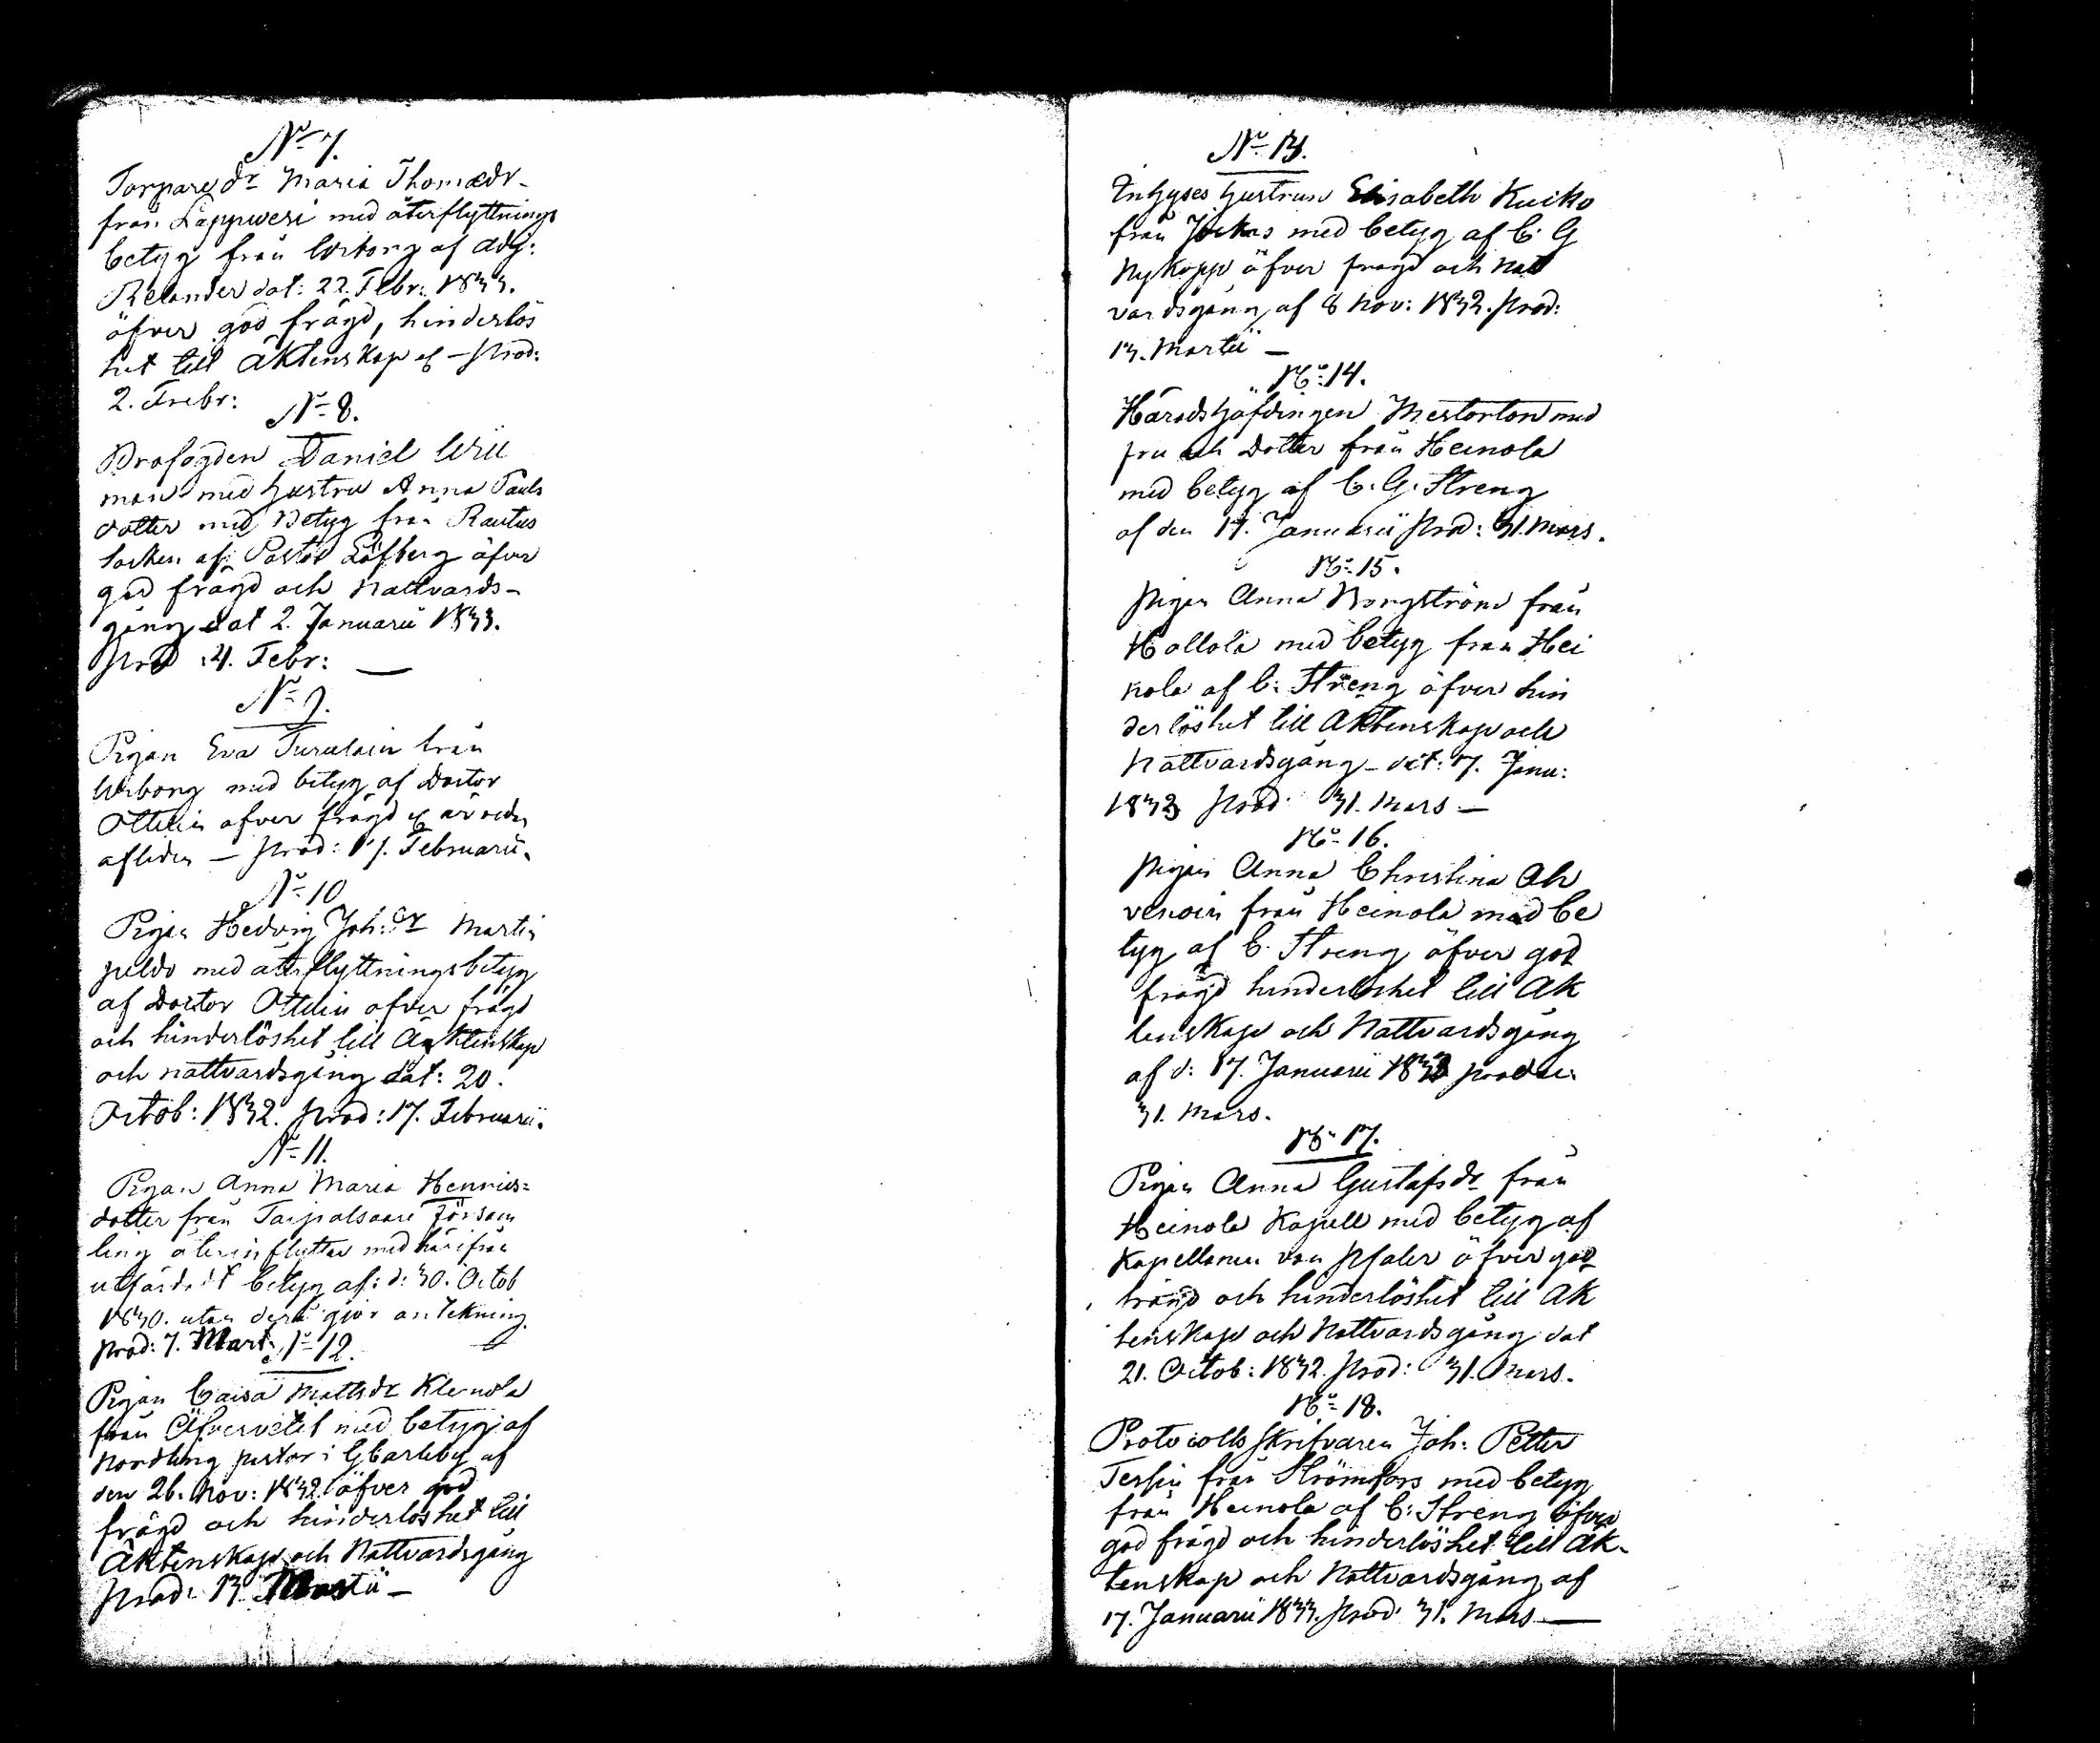 No 7.
Torpare dr Maria Thomædr
från Lappwesi med återflyttnings
betyg från Wiborg af adj:
Relander dat: 22. Febr: 1833.
öfver god frägd, hinderlös
het till Äktenskap &c – Prod:
2. Frebr:
No 8.
Profogden Daniel Wili
man med hustru Anna Pauls
dotter med Betyg från Rautus
socken af Pastor Löfberg öfver
god frägd och Nattvards-
gång dat 2. Januarii 1833.
Prod: 4. Febr: —
No 9.
Pigan Eva från
Wiborg med betyg af Doctor
Ottelin öfver frägd &
afliden – Prod: 17. Februarii.
No 10
Pigan Hedvig Joh: dr Martis
med återflyttningsbetyg
af Doctor Ottelin öfver frägd
och hinderlöshet till Äktenskap
och nattvardsgång dat: 20.
Octob: 1832. Prod: 17. Februarii.
No 11.
Pigan Anna Maria Henrics=
dotter från Taipalsaari Församm
ling återinflyttar med härifrån
utfärdadt betyg af: d: 30. Octob
1830. utan derå gjor anteknìng.
Prod: 7. Mart:
No 12.
Pigan Caisa Mattsdr Klemola
från Öfvervetil med betyg af
Nordling pastor i GCarleby af
den 26. Nov: 1832. öfver god
frägd och hinderlöshet till
Äktenskap och Nattvardsgång
Prod: 13. Martii –
No 13.
Inhyses hustrun Elisabeth Kuiko
från Jockas med betyg af C. G
Nykopp öfver frägd och Natt
vardsgång af 8 Nov: 1832. Prod:
13. Martii –
No 14.
Häradshöfdingen Mestorton med
fru och Dotter från Heinola
med betyg af C. G. Streng
af den 17. Januarii Prod: 31. Mars.
No 15.
Pigan Anna Borgström från
Hollola med betyg från Hei
nola af C: Streng öfver hin
derlöshet till Äktenskap och
Nattvardsgång – dat: 17. Janu:
1833 Prod: 31. Mars –
No 16.
Pigan Anna Christina Ah
venain från Heinola med be
tyg af C. Streng öfver god
frägd hinderlöshet till Äk
tenskap och Nattvardsgång
af d: 17. Januarii 1833
31. Mars.
No 17.
Pigan Anna Gustafsdr från
Heinola Kapell med betyg af
Kapellanen von Pfaler öfver god
frägd och hinderlöshet till Äk
tenskap och Nattvardsgång dat
21. Octob: 1832. Prod: 31. Mars.
No 18.
Protocolls skrifvaren Joh: Petter
från Strömfors med betyg
från Heinola af C: Streng öfver
god frägd och hinderlöshet till Äk-
tenskap och Nattvardsgång af
17. Januarii 1833. Prod: 31. Mars —